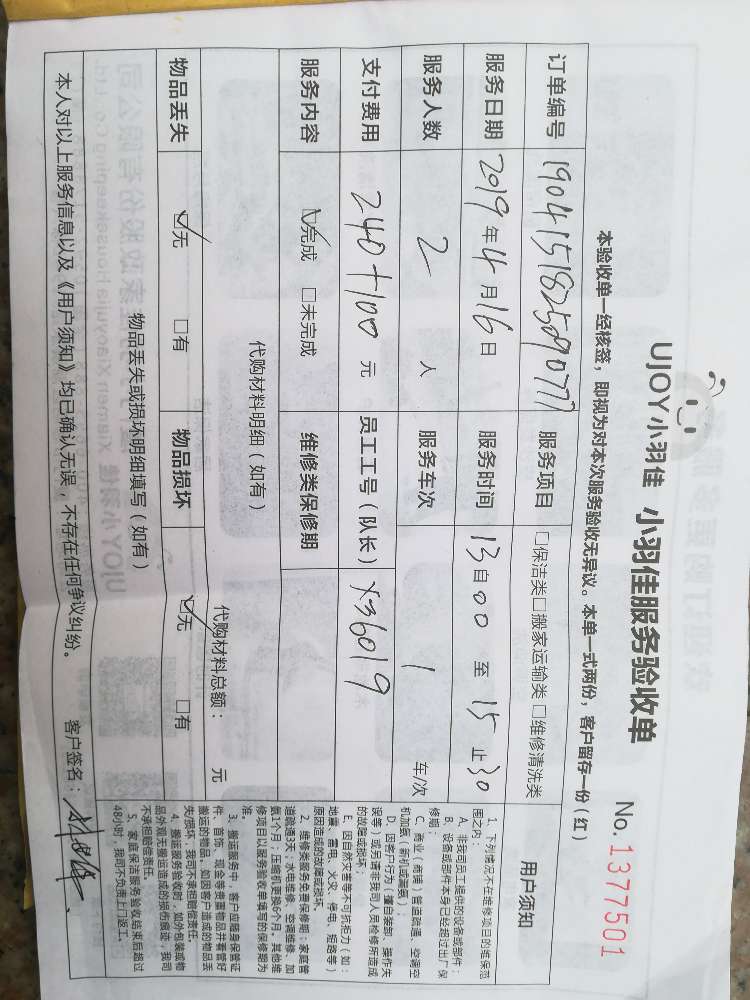 UJOY小羽佳 小羽佳服务验收单
No. 1377501
本验收单一经核签，即视为对本次服务验收无异议。本单一式两份，客户留存一份（红）
订单编号 190415182509077 服务项目 □保洁类□搬家运输类□维修清洗类
服务日期 2019年4月16日 服务时间 13自00至15止30
服务人数 2 人 服务车次 1 车/次
支付费用 240+100 元 员工工号（队长） X36019
服务内容 ☑完成 □未完成 维修类保修期
代购材料明细（如有）
代购材料总额： 元
物品丢失 ☑无 □有 物品损坏 ☑无 □有
物品丢失或损坏明细填写（如有）
本人对以上服务信息以及《用户须知》均已确认无误，不存在任何争议纠纷。
客户签名：
用户须知
1. 下列情况不在维修项目的维保范
围之内：
A、非我司员工提供的设备或部件；
B、设备或部件本身已经超过出厂保
修期；
C、商业（商铺）管道疏通、空调空
机加氟（新机或漏氟）；
D、因客户行为（擅自装卸、操作失
误等）或另请非我司人员检修所造成
的故障或损坏；
E、因自然灾害等不可抗拒力（如：
地震、雷电、火灾、停电、短路等）
原因造成的故障或损坏。
2、维修类服务免费保修期：家庭管
道疏通3天；水电维修、空调维修、加
氨1个月；压缩机更换6个月，其他维
修项目以服务验收单填写的保修期为
准
3、搬运服务中，客户应随身保管证
件、首饰、现金等贵重物品并看管好
搬运的物品，如因客户造成的物品丢
失/损坏，我司不承担赔偿责任。
4、搬运服务验收时，如外包装或物
品外观无搬运造成的损伤痕迹，我司
不承担赔偿责任。
5、家庭保洁服务验收结束后超过
48小时，我司不负责上门返工。